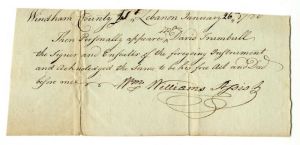 Windham County Ss Lebanon January 26
Then Personally appeared David Trumbull
the Signer and Ensealer of the foregoing Instrument
and Acknowledged the Same to be his free Act and Deed
before me Wm Williams Assist